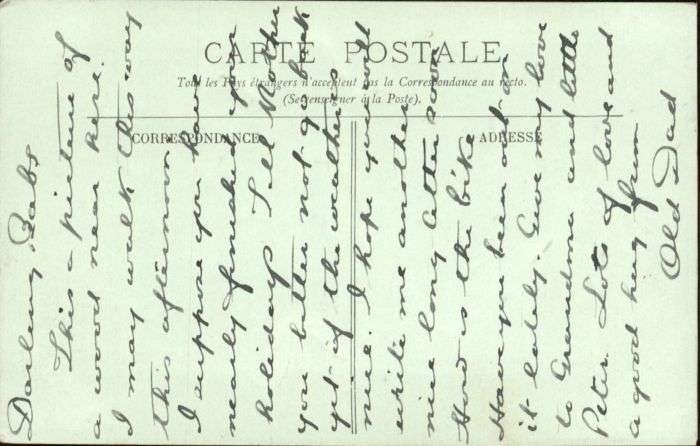 CARTE POSTALE
Tous les Pays étrangers n'acceptent pas la Correspondance au recto.
(Se renseigner à la Poste).
CORRESPONDANCE
ADRESSE
Darling Babs
This a picture of
a wood near here.
I may walk this way
this afternoon.
I suppose you have
nearly finished your
holidays Tell Mother
you better not go back
yet if the weather is
nice. I hope you will
write me another
nice long letter soon
How is the bike
Have you been out on
it lately. Give my love
to Grandma and little
Peter. Lots of love and
a good hug from
Old Dad